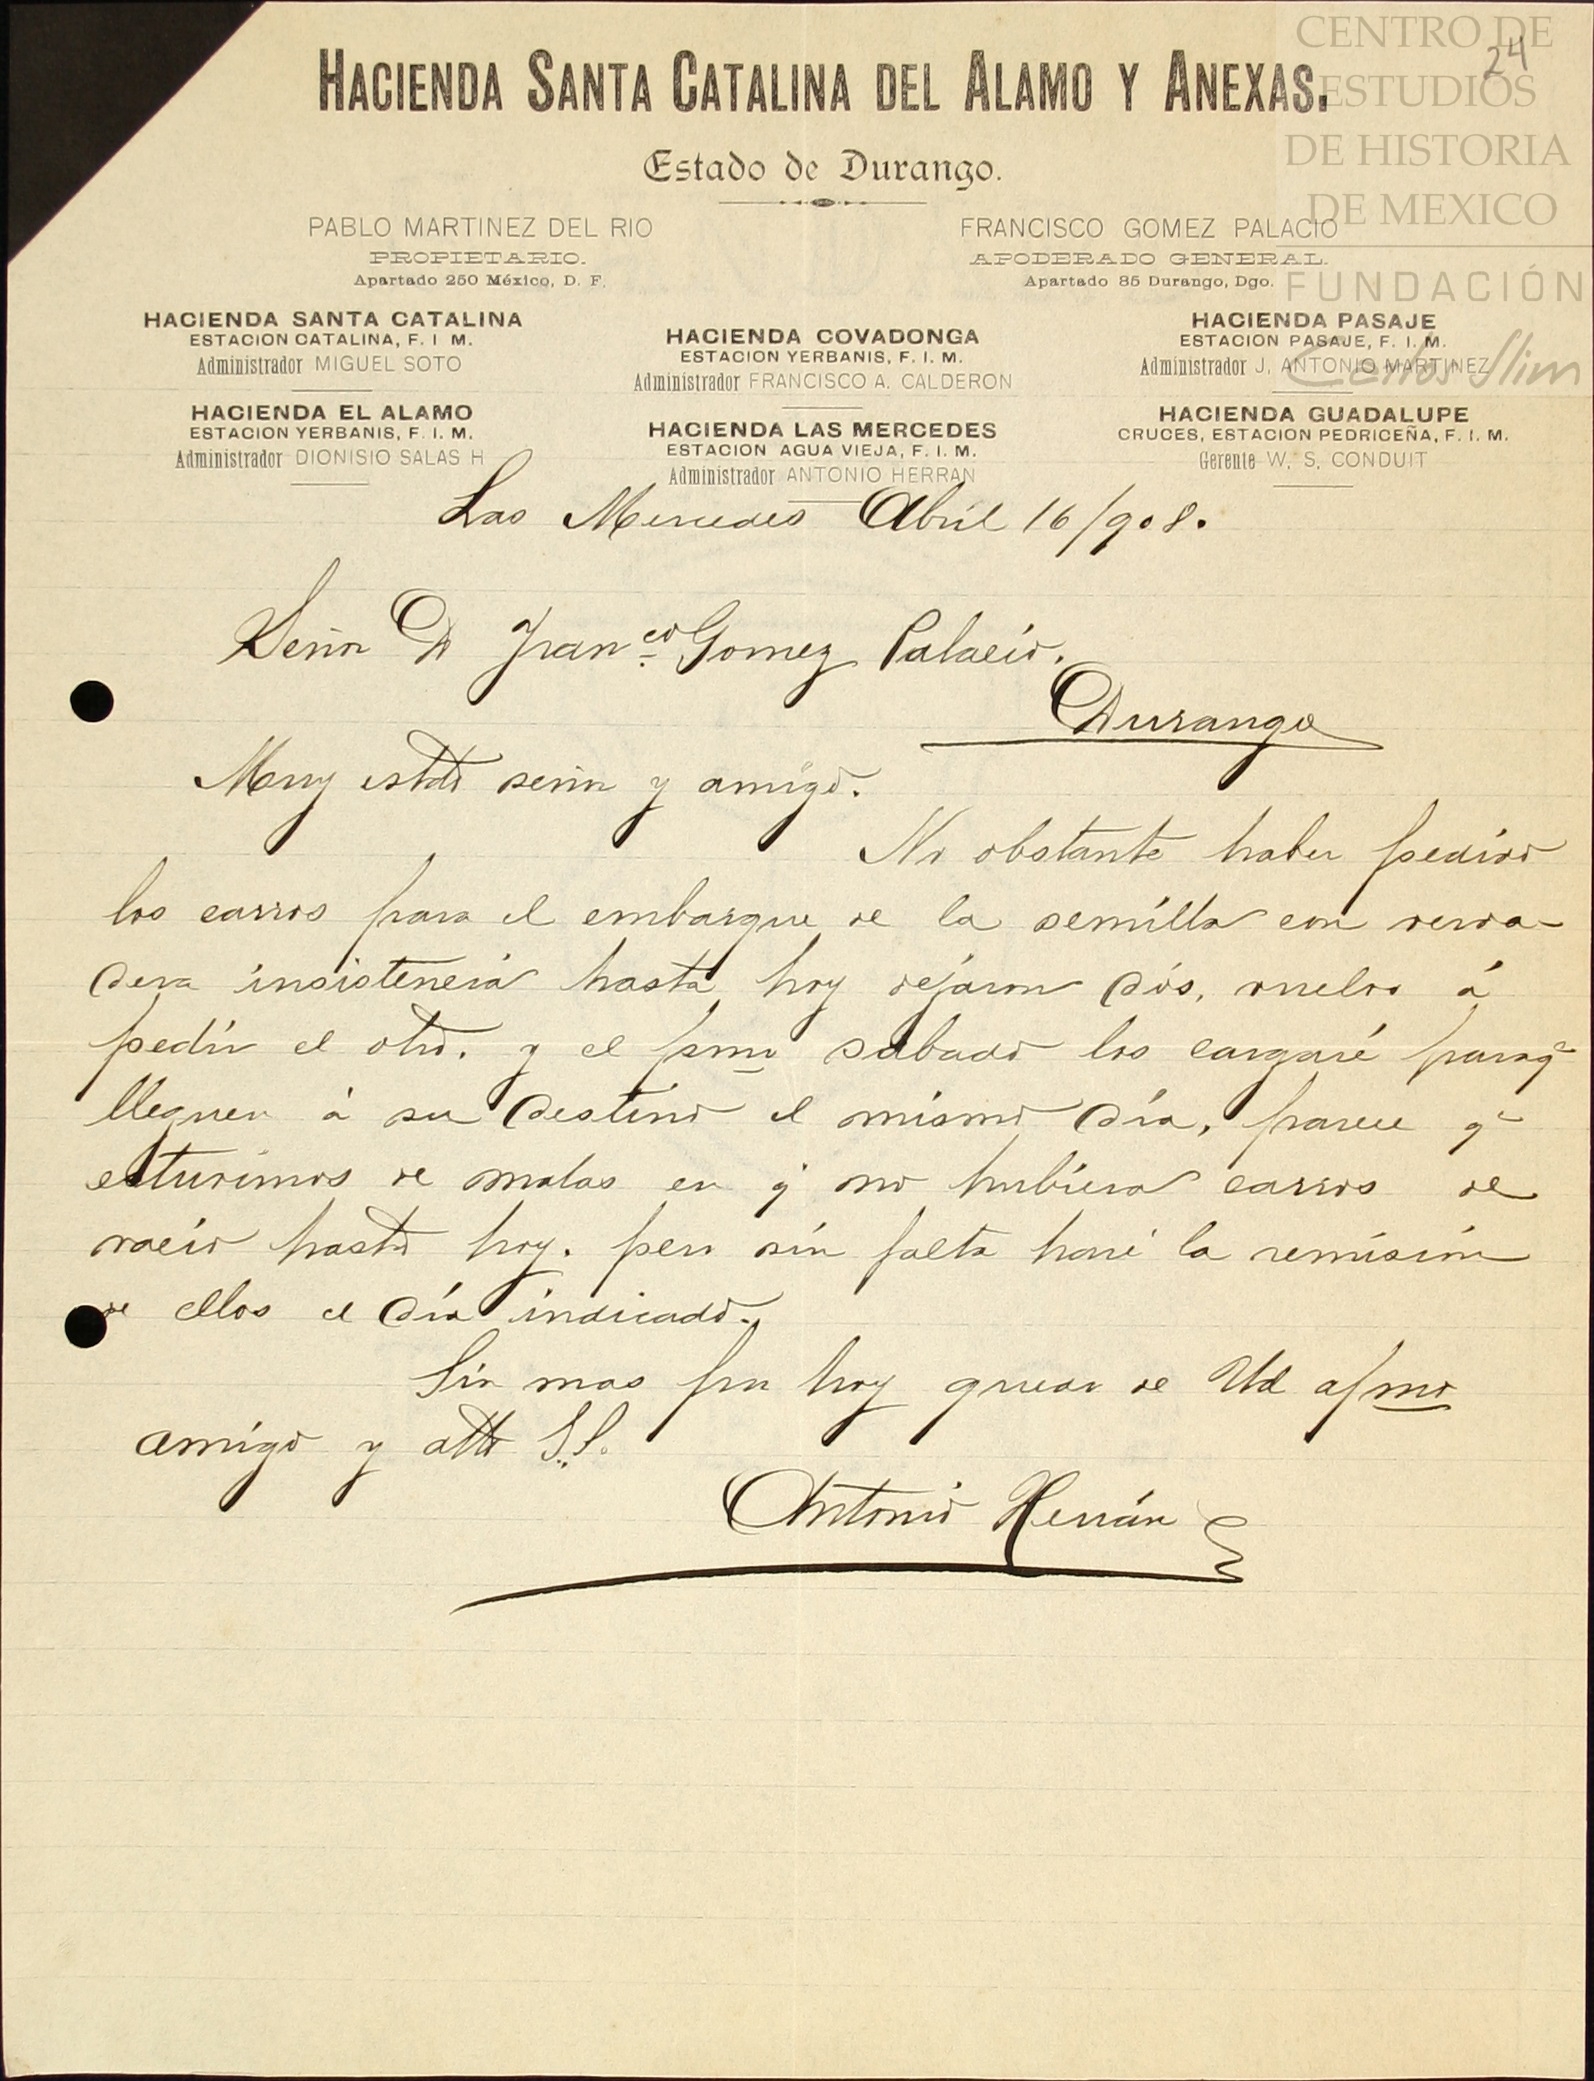 24
CENTRO DE
ESTUDIOS
DE HISTORIA
DE MEXICO
FUNDACIÓN
Carlos Slim
HACIENDA SANTA CATALINA DEL ALAMO Y ANEXAS.
Estado de Durango.
PABLO MARTINEZ DEL RIO
PROPIETARIO.
Apartado 250 México, D. F.
FRANCISCO GOMEZ PALACIO
APODERADO GENERAL.
Apartado 85 Durango, Dgo.
HACIENDA SANTA CATALINA
ESTACION CATALINA, F. I M.
Administrador MIGUEL SOTO
HACIENDA COVADONGA
ESTACION YERBANIS, F. I. M.
Administrador FRANCISCO A. CALDERON
HACIENDA PASAJE
ESTACION PASAJE, F. I. M.
Administrador J. ANTONIO MARTINEZ
HACIENDA EL ALAMO
ESTACION YERBANIS, F. I. M.
Administrador DIONISIO SALAS H
HACIENDA LAS MERCEDES
ESTACION AGUA VIEJA, F. I. M.
Administrador ANTONIO HERRAN
HACIENDA GUADALUPE
CRUCES, ESTACION PEDRICEÑA, F. I. M.
Gerente W. S. CONDUIT
Las Mercedes Abril 16/908.
Señor D Franco Gomez Palacio.
Durango
Muy estdo señor y amigo.
No obstante haber pedido
los carros para el embarque de la semilla con verda-
dera insistencia hasta hoy dejaron dós, vuelvo á
pedir el otro. y el pmo sabado los cargaré paraq
lleguen á su destino el mismo día, parece q
estuvimos de malas en q no hubiera carros de
vacio hasta hoy. pero sin falta haré la remisión
de ellos el día indicado.
Sin mas por hoy quedo de Ud afmo
amigo y atto S.S.
Antonio Herrán